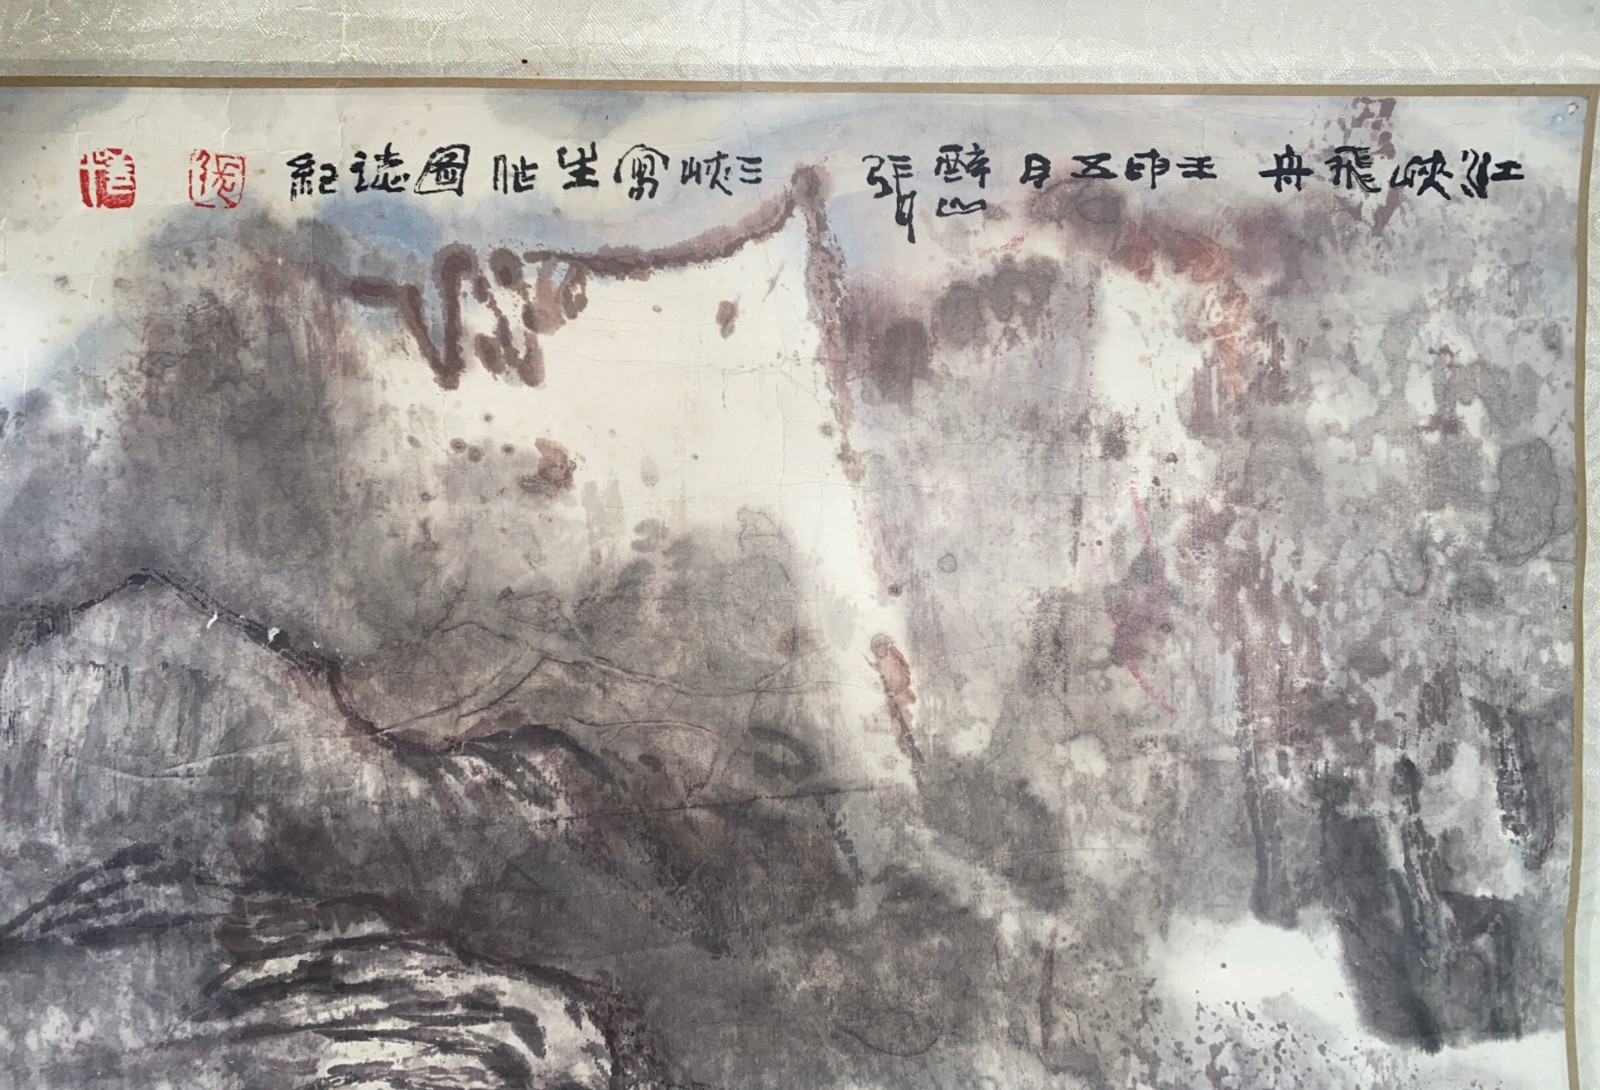 江峽飛舟 壬申五月 醉山 張 三峽寫生作圖誌紀